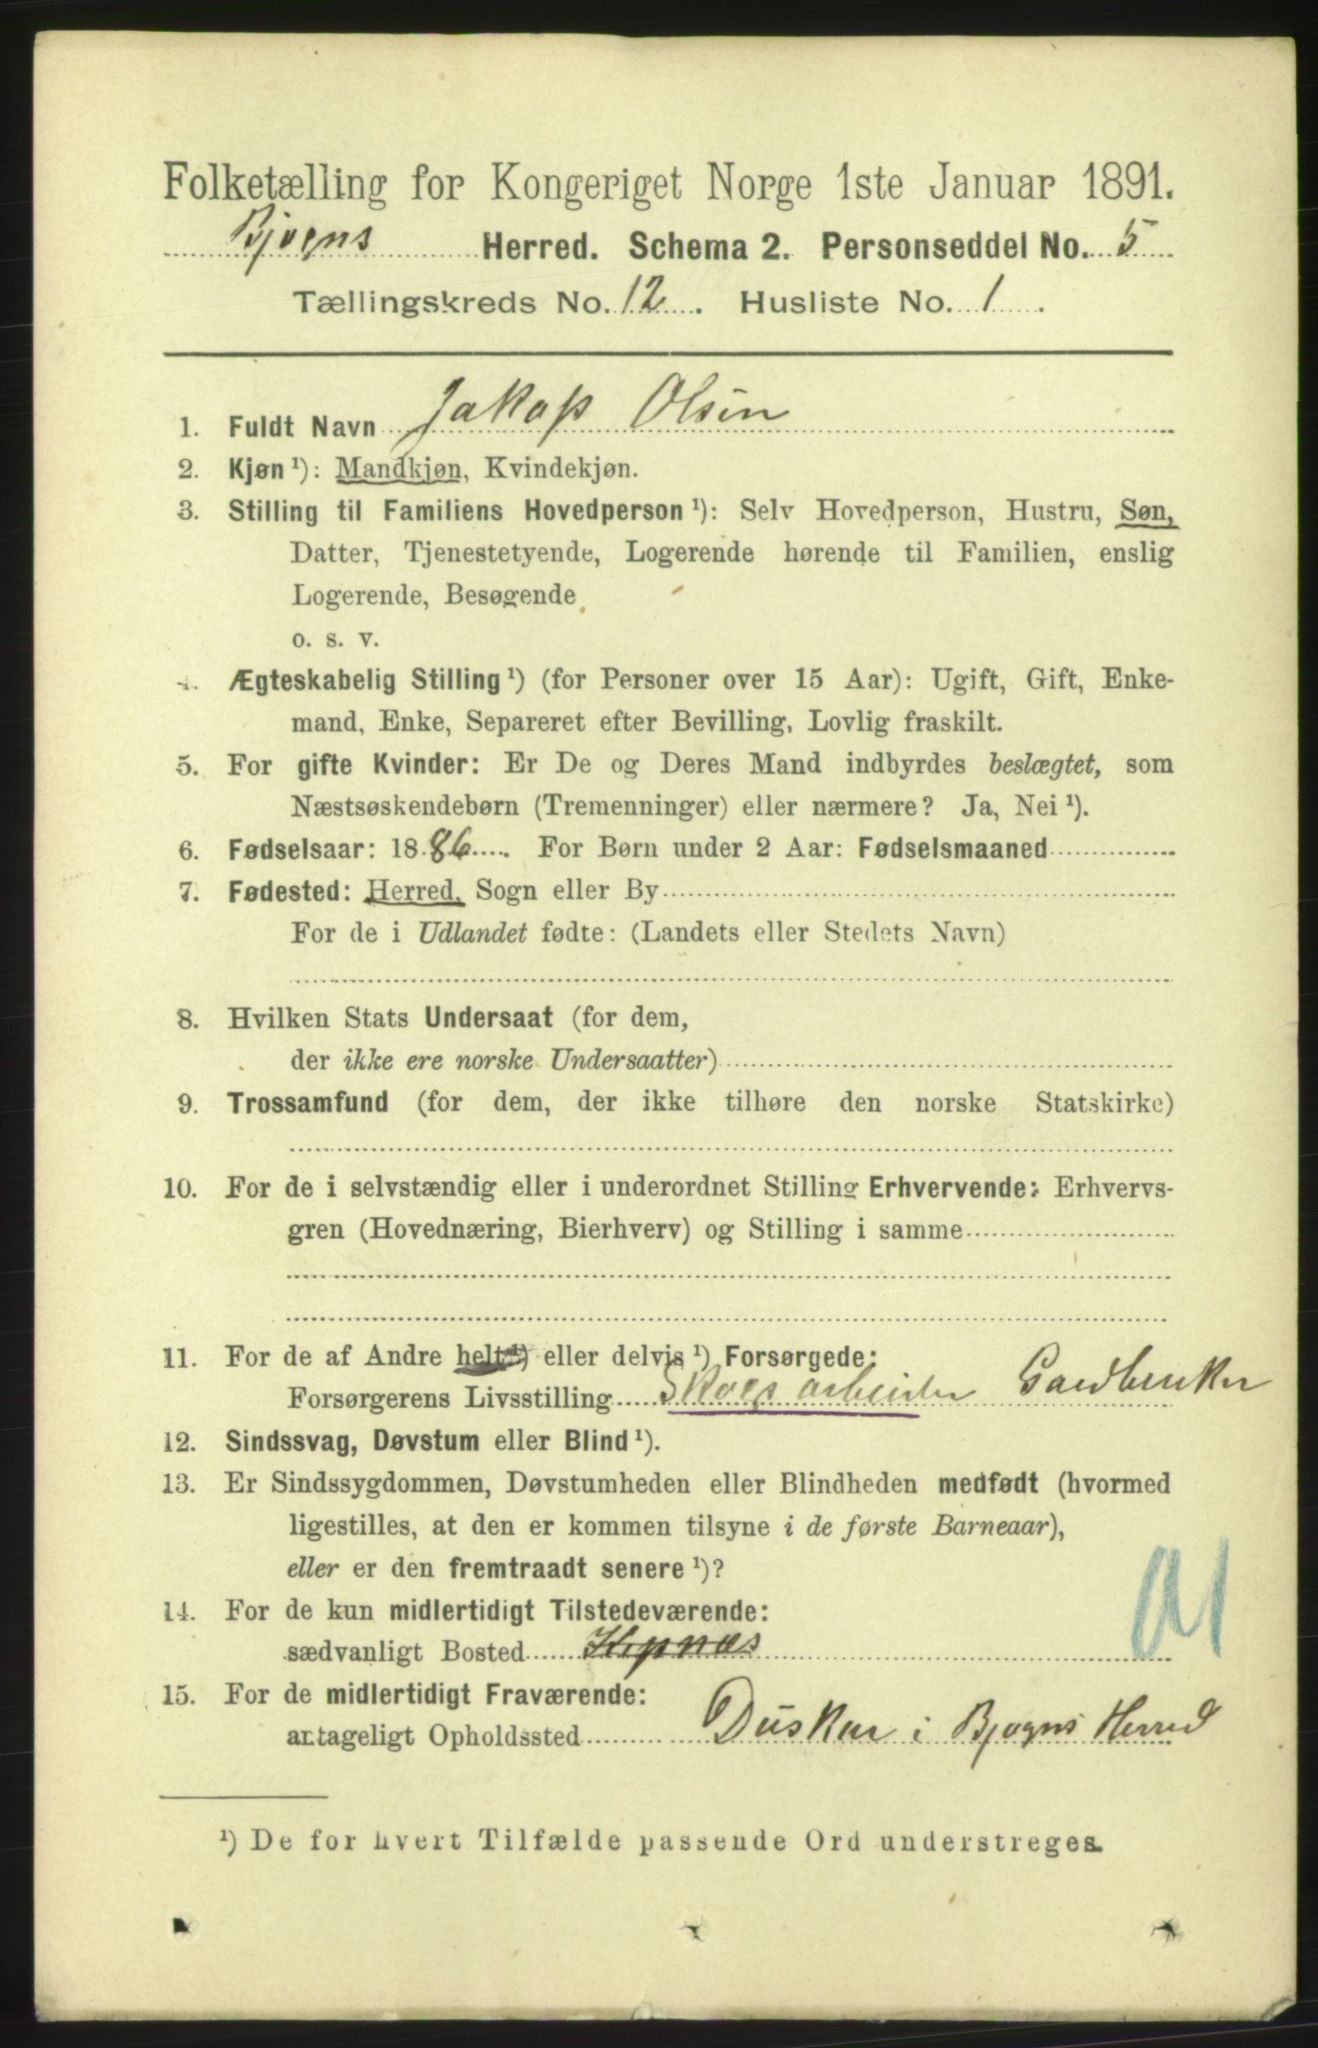 Folketælling for Kongeriget Norge 1ste Januar 1891.
Bjugns Herred. Schema 2. Personseddel No. 5
Tællingskreds No. 12. Husliste No. 1.
1. Fuldt Navn Jakop Olsen
2. Kjøn ¹): Mandkjøn, Kvindekjøn.
3. Stilling til Familiens Hovedperson ¹): Selv Hovedperson, Hustru, Søn,
Datter, Tjenestetyende, Logerende hørende til Familien, enslig
Logerende, Besøgende
o. s. v.
4. Ægteskabelig Stilling ¹) (for Personer over 15 Aar): Ugift, Gift, Enke-
mand, Enke, Separeret efter Bevilling, Lovlig fraskilt.
5. For gifte Kvinder: Er De og Deres Mand indbyrdes beslægtet, som
Næstsøskendebørn (Tremenninger) eller nærmere? Ja, Nei ¹).
6. Fødselsaar: 1886. For Børn under 2 Aar: Fødselsmaaned
7. Fødested: Herred, Sogn eller By
For de i Udlandet fødte: (Landets eller Stedets Navn)
8. Hvilken Stats Undersaat (for dem,
der ikke ere norske Undersaatter)
9. Trossamfund (for dem, der ikke tilhøre den norske Statskirke)
10. For de i selvstændig eller i underordnet Stilling Erhvervende: Erhvervs-
gren (Hovednæring, Bierhverv) og Stilling i samme
11. For de af Andre helt ¹) eller delvis ¹) Forsørgede:
Forsørgerens Livsstilling Skogsarbeider Gaardbruker
12. Sindssvag, Døvstum eller Blind ¹).
13. Er Sindssygdommen, Døvstumheden eller Blindheden medfødt (hvormed
ligestilles, at den er kommen tilsyne i de første Barneaar),
eller er den fremtraadt senere ¹)?
14. For de kun midlertidigt Tilstedeværende:
sædvanligt Bosted
15. For de midlertidigt Fraværende:
antageligt Opholdssted i Bjugns Herred
¹) De for hvert Tilfælde passende Ord understreges.